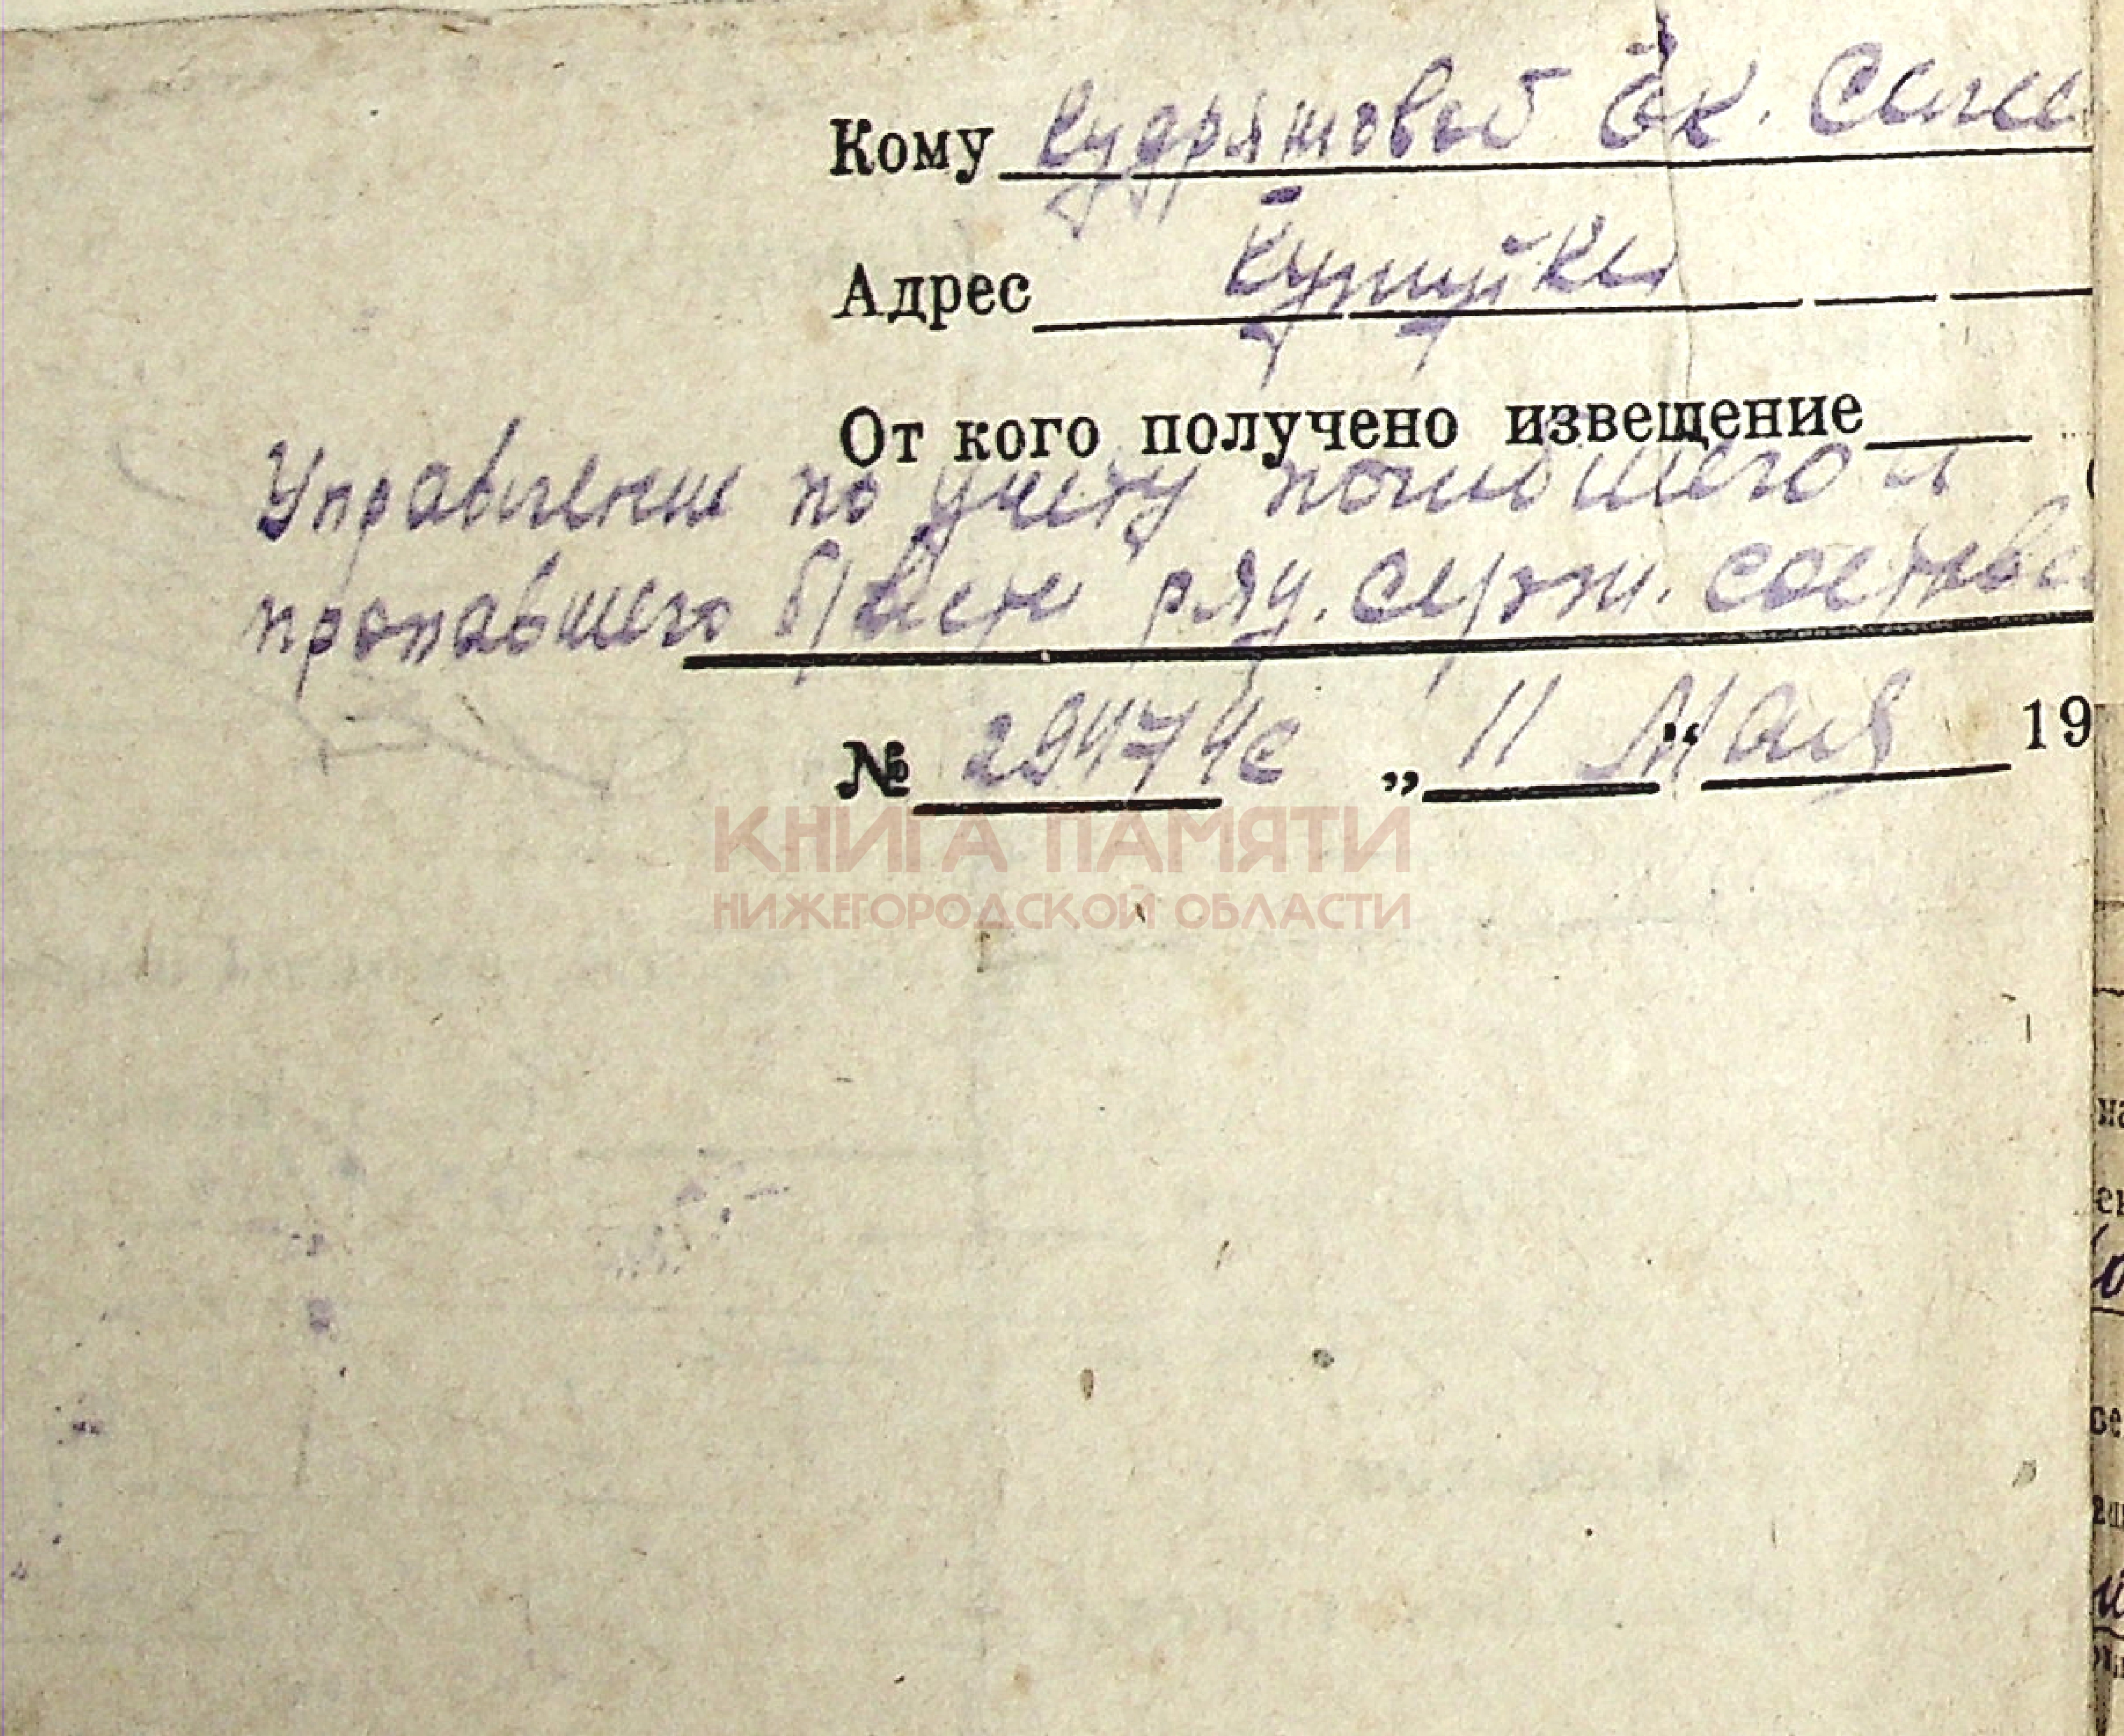 Кому Кудряшовой Ек. Семе
Адрес
От кого получено извещение
Управление по учету погибшего и
пропавшего б/вести ряд. серж. состава
№ 294744с „ 11 “ Мая 19
КНИГА ПАМЯТИ
НИЖЕГОРОДСКОЙ ОБЛАСТИ